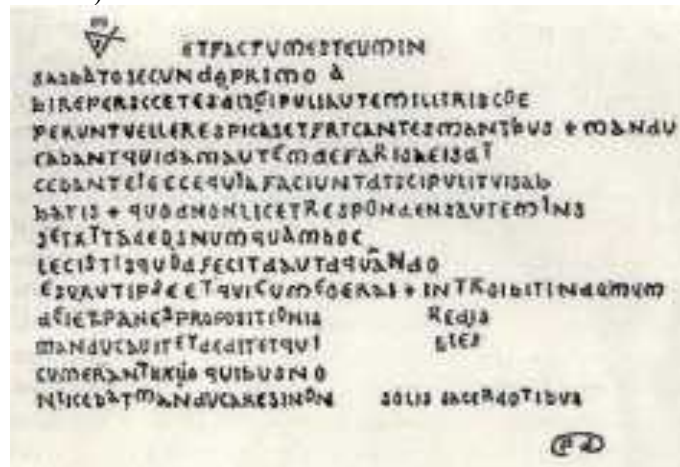 ETFACTUMESTEUMIN
SABBATOSECUNdOPRIMO À
BIREPERSCCETESdISCIPULIAUTEMILLITRISCOE
PERUNTVELLERESPICASETFRTCANTESMANTBUS + MANdU
CABANTQUIdAMAUTEMdEFARISAEISdT
CEBANTEIECCEQUIAFACIUNTdTSCIPULITVISAB
BATIS + QUOdNONLICETRESPONdENSAUTEMINS
SETXTTAdEOSNUMQUAMHOC
LECISTISQUOdFECITdAUTdQUANdO
ESURUTIPSEETQUICUMEOERAI + INTROIBITINdOMUM
dEIETPANESPROPOSITIONIS REdIS
MANdUCAUITETdEdITETQUI BLES
CUMERANTUXUO QUIBUSNO
NLICEBATMANdUCARESINON SOLIS SACERdOTIBUS